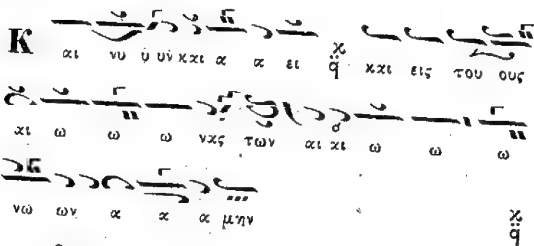 Κ αι νυ υ υν και α α ει χ̤ q̈ και εις του ους
αι ω ω ω νας των αι αι ω ω ω
νω ων α α α μην χ̤ q̈